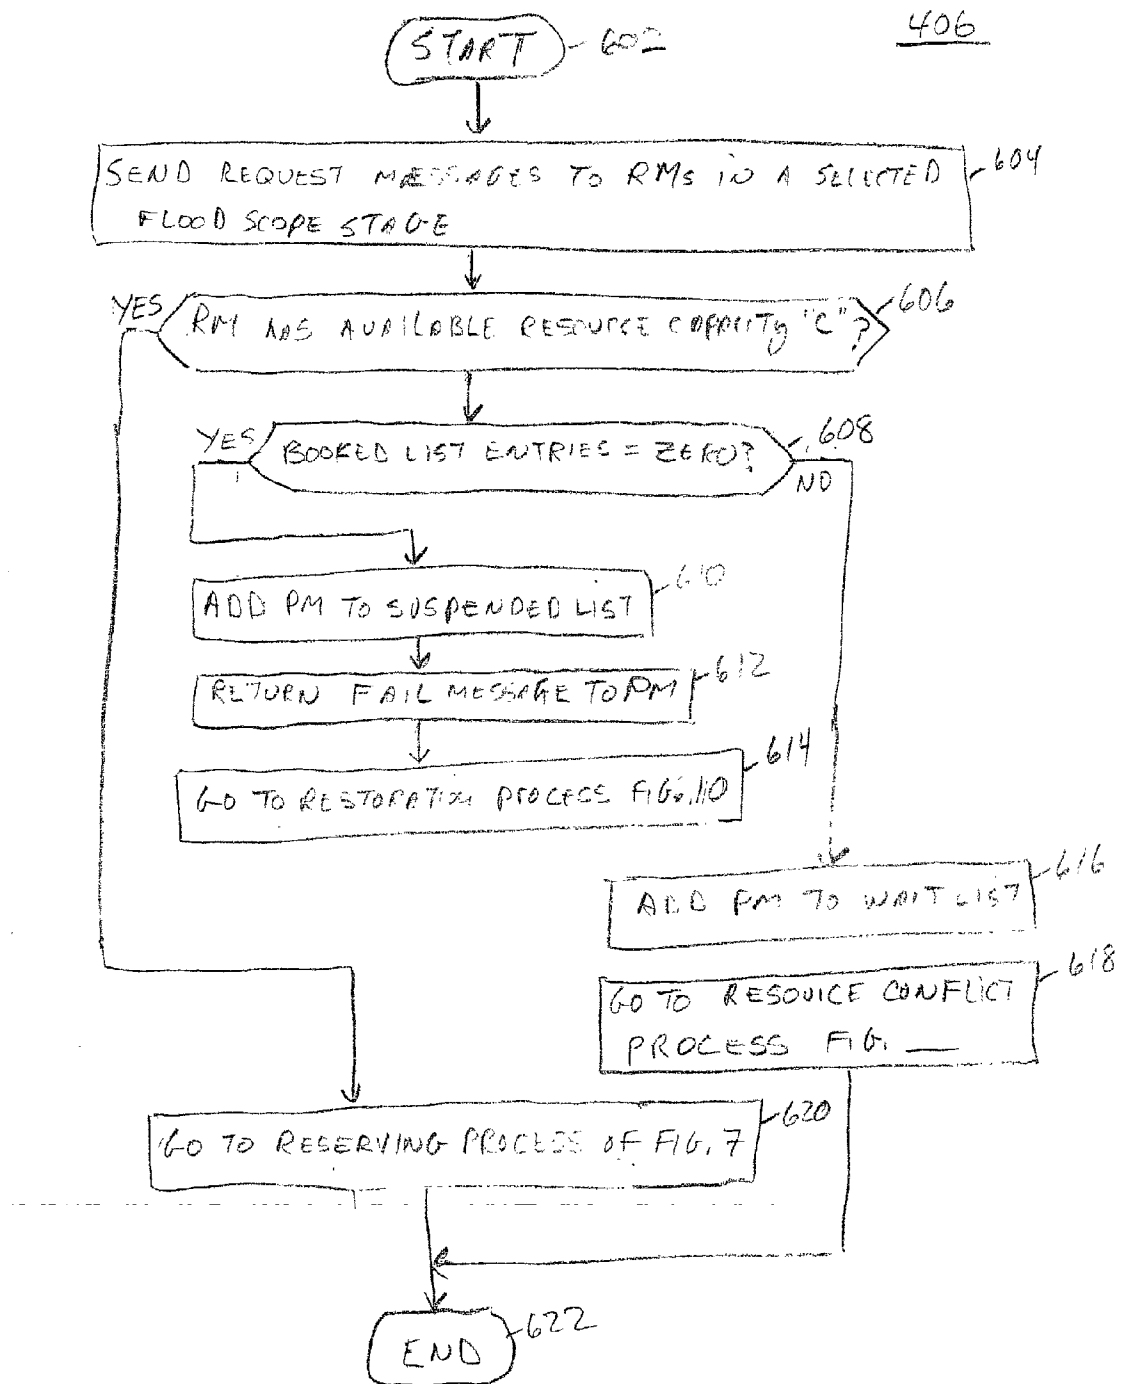 406
START 602
SEND REQUEST MESSAGES TO RMs IN A SELECTED 604
FLOOD SCOPE STAGE
YES
RM HAS AVAILABLE RESOURCE CAPACITY "C"? 606
YES
BOOKED LIST ENTRIES = ZERO? 608
NO
ADD PM TO SUSPENDED LIST 610
RETURN FAIL MESSAGE TO PM 612
GO TO RESTORATION PROCESS 614
ADD PM TO WAIT LIST 616
GO TO RESOURCE CONFLICT 618
PROCESS FIG. __
GO TO RESERVING PROCESS OF FIG. 7 620
END 622